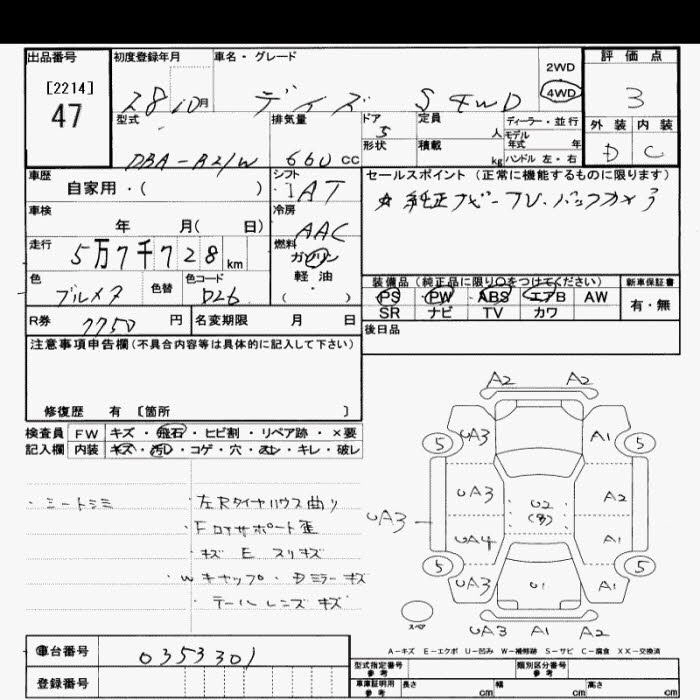 出品番号 初度登録年月 車名・グレード 2WD 評価点
[2214] 47 28 10月 デイズ S 4WD 4WD 3
型式 排気量 ドア 5 定員 人 ディーラー・並行 外装 内装
形状 積載 kg モデル年式 年 D C
DBA-B21W 660 CC ハンドル 左・右
車歴 シフト セールスポイント (正常に機能するものに限ります)
自家用・( ) 1AT ☆ 純正ナビ-TV・バックカメラ
車検 冷房
年 月( 日) AAC
走行 燃料
5万7千728km ガソリン
色 色替 色コード 軽油 装備品 (純正品に限り○をつけてください) 新車保証書
ブルメタ ( ) PS PW ABS エアB AW 有・無
SR ナビ TV カワ
R券 7750 円 名変期限 月 日 後日品
注意事項申告欄(不具合内容等は具体的に記入して下さい)
修復歴 有 [箇所 ]
検査員 FW キズ・飛石・ヒビ割・リペア跡・×要
記入欄 内装 キズ・汚レ・コゲ・穴・スレ・キレ・破レ
・シートシミ ・左Rタイヤハウス曲り
・Fロアサポート歪
・キズ E スリキズ
・Wキャップ・Dミラーキズ
・テールレンズキズ
A2 A2
5 UA3 A1 5
UA3 UA3 U2 (多) A2
UA4 A1
5 UA3 U1 A1 5
スペア UA3 A1 A2
A-キズ E-エクボ U-凹み W-補修跡 S-サビ C-腐食 XX-交換済
車台番号 0353301 型式指定番号 参考 類別区分番号 参考
登録番号 車庫証明用 参考 長さ cm 幅 cm 高さ cm